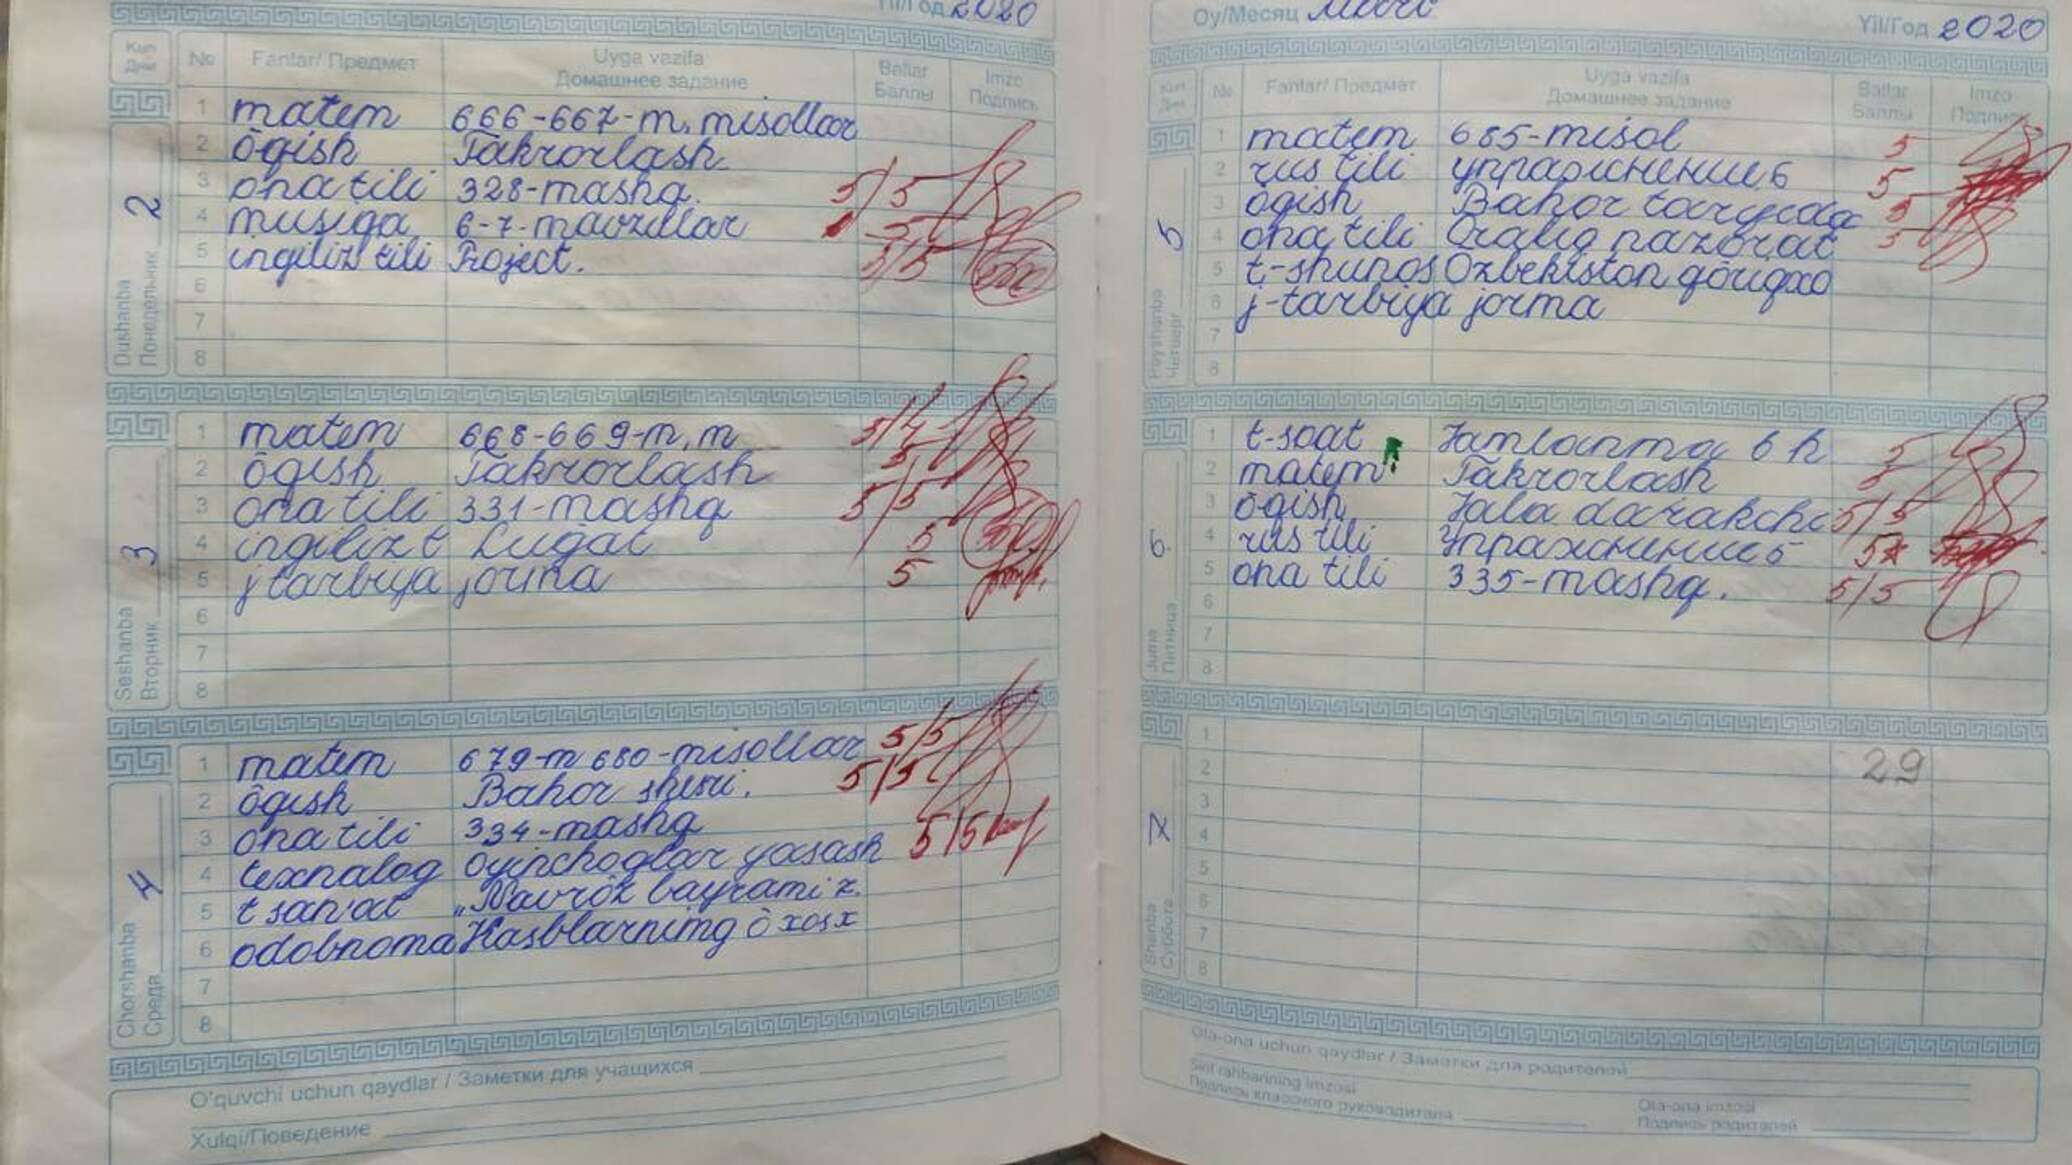 Yil/Год 2020
Kun Дни
№ Fanlar/ Предмет Uyga vazifa Домашнее задание Ballar Баллы Imzo Подпись
Dushanba Понедельник 2
1 matem 666-667-m. misollar
2 ōgish Takrorlash
3 ona tili 328-mashq. 5/5
4 musiqa 6-7-mavzular 5
5 ingiliz tili Project. 5/5
6
7
8
Seshanba Вторник 3
1 matem 668-669-m, m 5/4
2 ōgish Takrorlash 5
3 ona tili 331-mashq 5/5
4 ingiliz t Lugat 5
5 j tarbiya jorma 5
6
7
8
Chorshanba Среда 4
1 matem 679-m 680-misollar 5/5
2 ōgish Bahor sheri. 5/5
3 ona tili 334-mashq
4 texnalog oyinchoqlar yasash 5/5
5 t sanat „Navrōz bayrami z.
6 odobnoma Kasblarning ō xosx
7
8
O'quvchi uchun qaydlar / Заметки для учащихся
Xulqi/Поведение
Oy/Месяц Mart Yil/Год 2020
Kun Дни
№ Fanlar/ Предмет Uyga vazifa Домашнее задание Ballar Баллы Imzo Подпись
Payshanba Четверг 5
1 matem 685-misol 5
2 rus tili упражнение 6 5
3 ōgish Bahor taryida 5
4 ona tili Oraliq nazorat 5
5 t-shunos Ozbekiston qōuqxo
6 j-tarbiya jorma
7
8
Juma Пятница 6
1 t-soat Jamlanma 6 h 5
2 matem Takrorlash 5
3 ōgish Jala darakchi 5/5
4 rus tili Упражнение 5 5*
5 ona tili 335-mashq. 5/5
6
7
8
Shanba Суббота 7
1
2 29
3
4
5
6
7
8
Ota-ona uchun qaydlar / Заметки для родителей
Sinf rahbarining imzosi
Подпись классного руководителя
Ota-ona imzosi
Подпись родителей